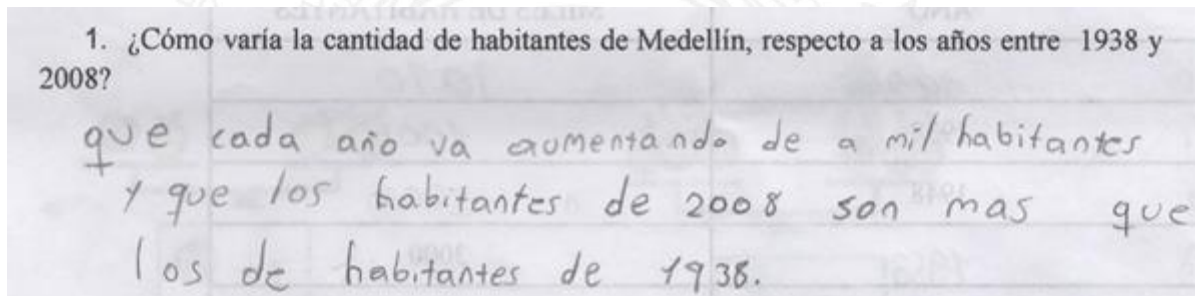 1. ¿Cómo varía la cantidad de habitantes de Medellín, respecto a los años entre 1938 y
2008?
que cada año va aumentando de a mil habitantes
y que los habitantes de 2008 son mas que
los de habitantes de 1938.